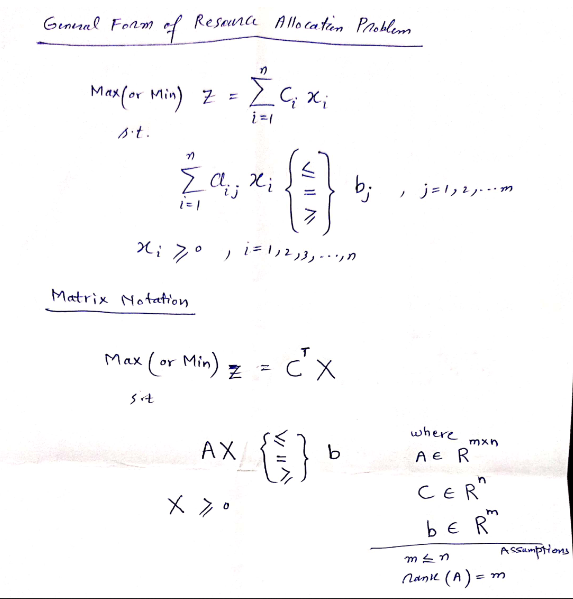 General Form of Resource Allocation Problem
Max (or Min) Z = ∑_{i=1}^{n} C_i x_i
s.t.
∑_{i=1}^{n} a_{ij} x_i {≤ = ≥} b_j , j=1,2,...m
x_i ≥ 0 , i=1,2,3,...,n
Matrix Notation
Max (or Min) Z = C^T X
s.t
AX {≤ = ≥} b
X ≥ 0
where
A ∈ R^{m×n}
C ∈ R^n
b ∈ R^m
Assumptions
m ≤ n
Rank (A) = m